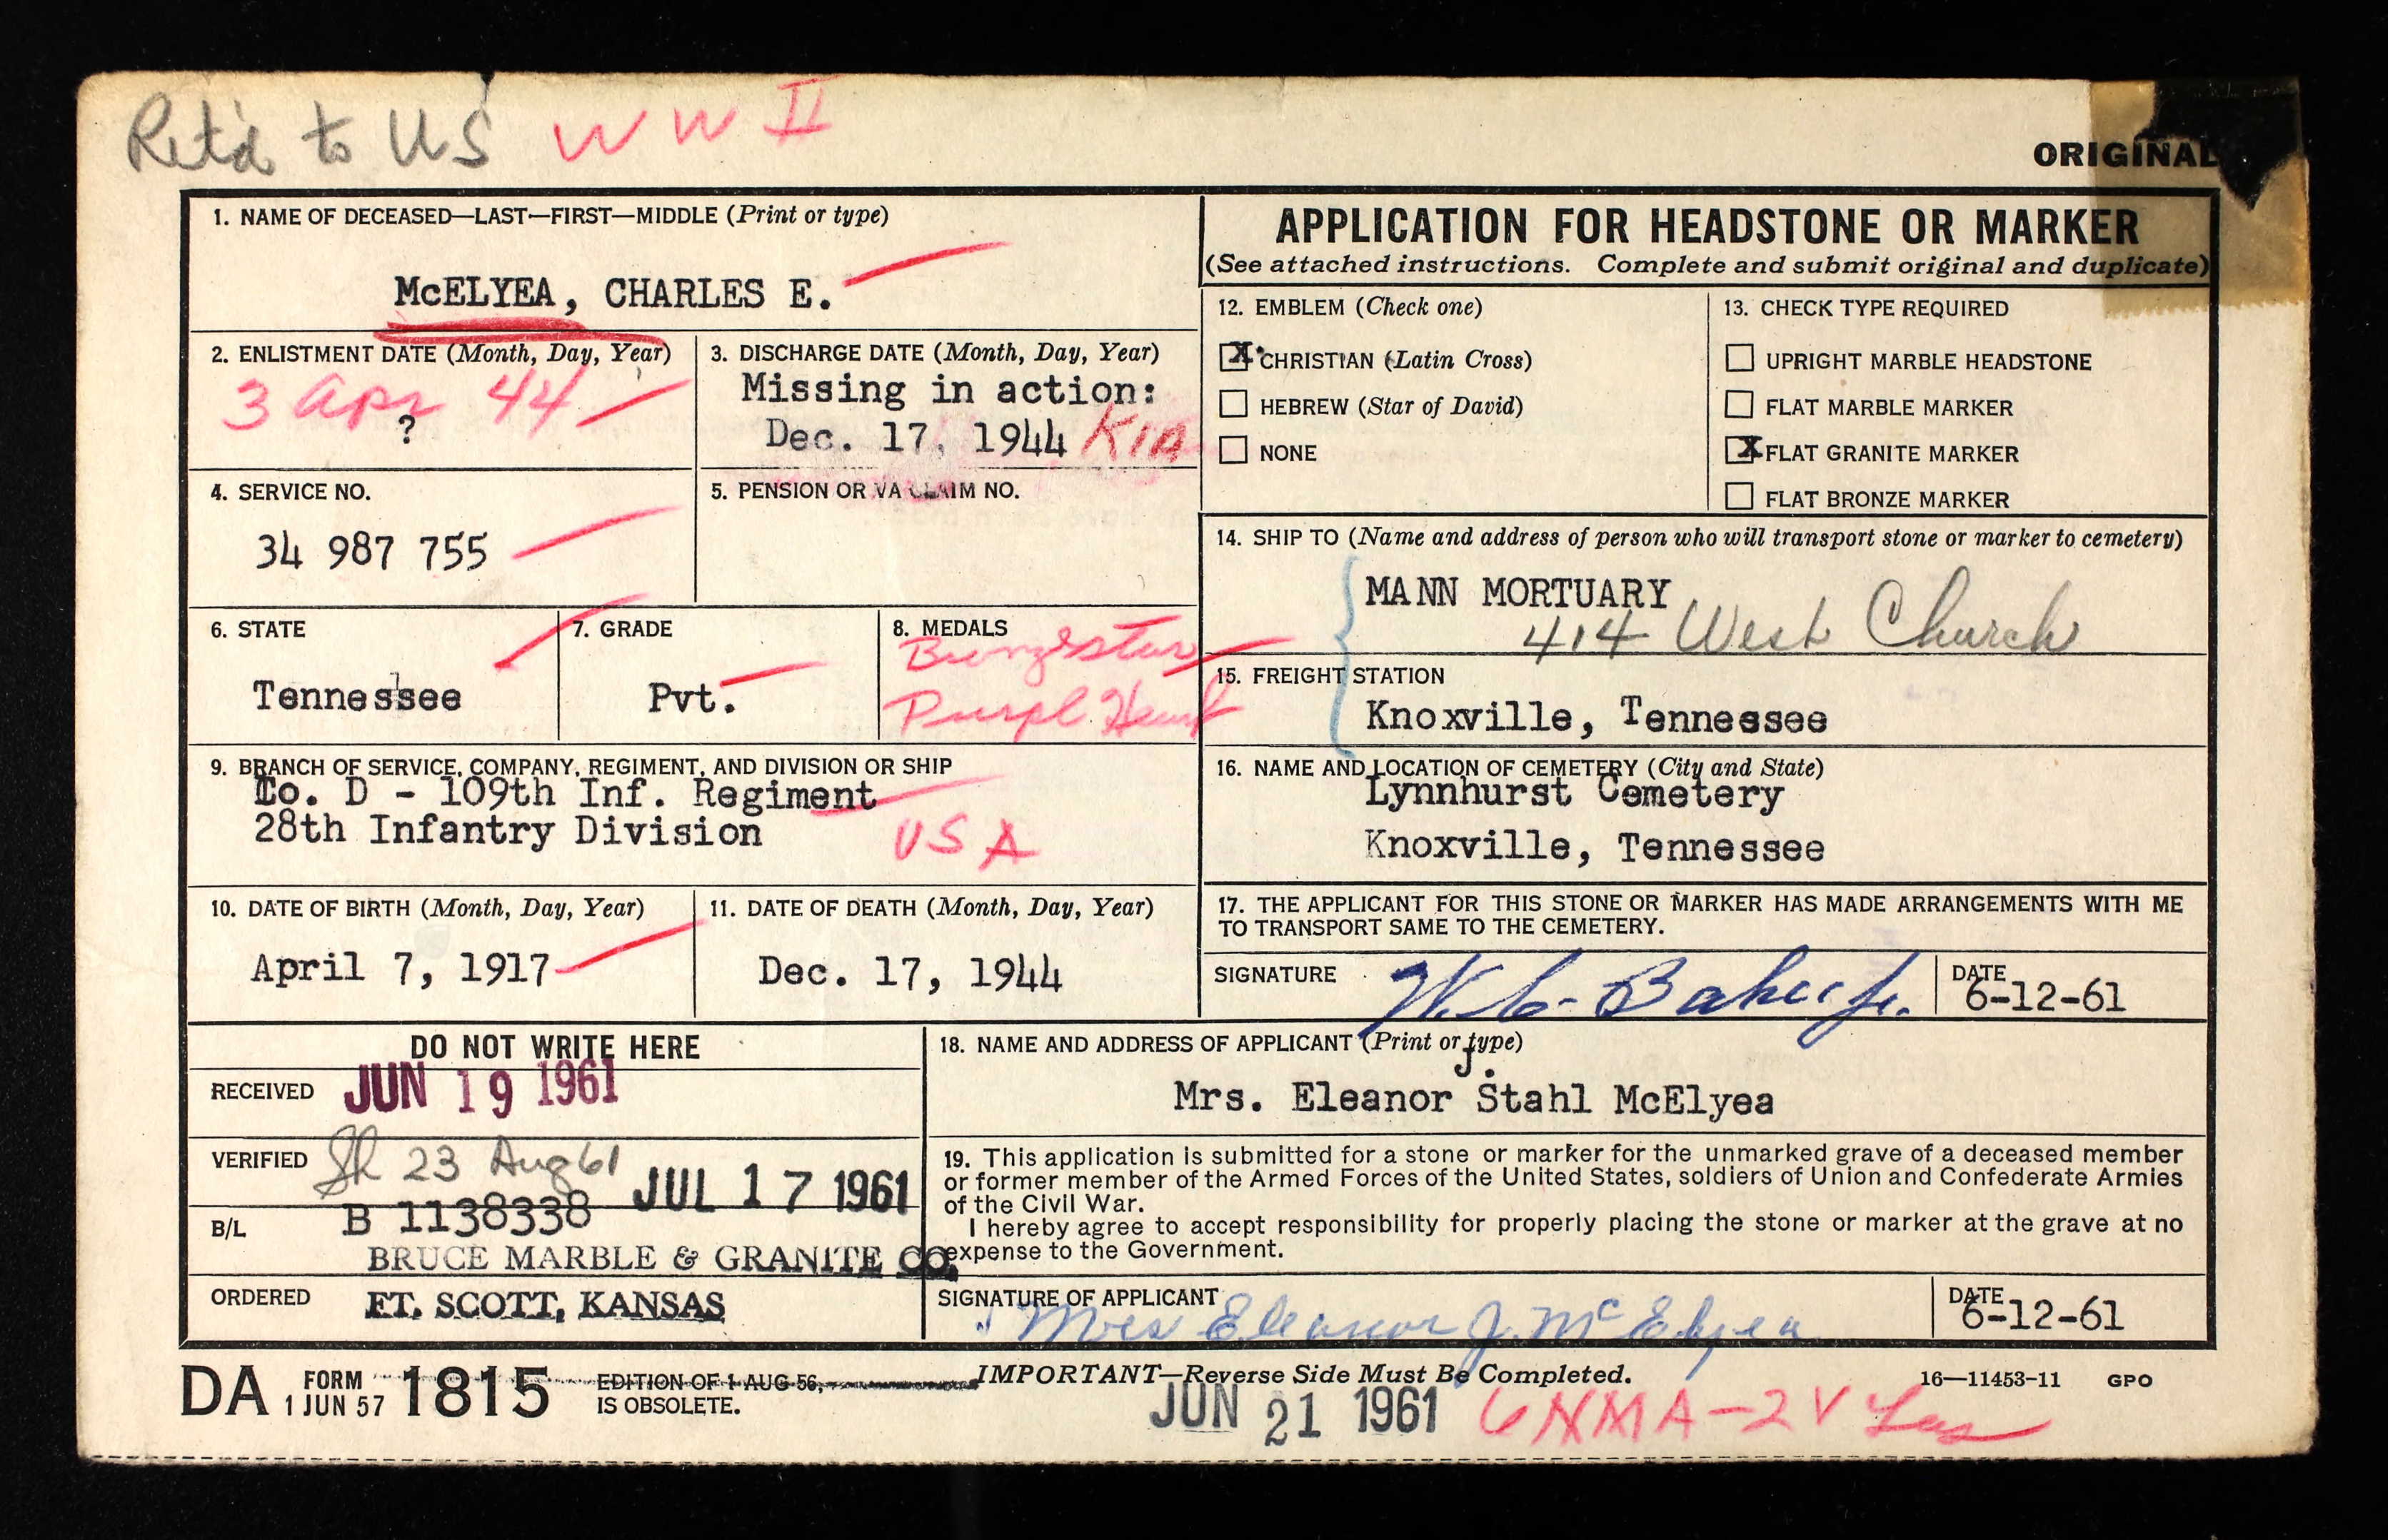 Ret'd to US WW II
ORIGINAL
1. NAME OF DECEASED—LAST—FIRST—MIDDLE (Print or type)
McELYEA, CHARLES E.
2. ENLISTMENT DATE (Month, Day, Year)
3 Apr 44
?
3. DISCHARGE DATE (Month, Day, Year)
Missing in action:
Dec. 17, 1944 KIA
4. SERVICE NO.
34 987 755
5. PENSION OR VA CLAIM NO.
6. STATE
Tennessee
7. GRADE
Pvt.
8. MEDALS
Bronze Star
Purpl Heart
9. BRANCH OF SERVICE, COMPANY, REGIMENT, AND DIVISION OR SHIP
Co. D - 109th Inf. Regiment
28th Infantry Division
USA
10. DATE OF BIRTH (Month, Day, Year)
April 7, 1917
11. DATE OF DEATH (Month, Day, Year)
Dec. 17, 1944
APPLICATION FOR HEADSTONE OR MARKER
(See attached instructions. Complete and submit original and duplicate)
12. EMBLEM (Check one)
X CHRISTIAN (Latin Cross)
HEBREW (Star of David)
NONE
13. CHECK TYPE REQUIRED
UPRIGHT MARBLE HEADSTONE
FLAT MARBLE MARKER
X FLAT GRANITE MARKER
FLAT BRONZE MARKER
14. SHIP TO (Name and address of person who will transport stone or marker to cemetery)
MANN MORTUARY
414 West Church
15. FREIGHT STATION
Knoxville, Tennessee
16. NAME AND LOCATION OF CEMETERY (City and State)
Lynnhurst Cemetery
Knoxville, Tennessee
17. THE APPLICANT FOR THIS STONE OR MARKER HAS MADE ARRANGEMENTS WITH ME
TO TRANSPORT SAME TO THE CEMETERY.
SIGNATURE W. C. Baker Jr.
DATE
6-12-61
DO NOT WRITE HERE
RECEIVED JUN 19 1961
VERIFIED 23 Aug 61 JUL 17 1961
B/L B 1138338
BRUCE MARBLE & GRANITE CO.
ORDERED FT. SCOTT, KANSAS
18. NAME AND ADDRESS OF APPLICANT (Print or type)
J.
Mrs. Eleanor Stahl McElyea
19. This application is submitted for a stone or marker for the unmarked grave of a deceased member
or former member of the Armed Forces of the United States, soldiers of Union and Confederate Armies
of the Civil War.
I hereby agree to accept responsibility for properly placing the stone or marker at the grave at no
expense to the Government.
SIGNATURE OF APPLICANT
Mrs Eleanor J. McElyea
DATE
6-12-61
DA FORM 1 JUN 57 1815
EDITION OF 1 AUG 56,
IS OBSOLETE.
IMPORTANT—Reverse Side Must Be Completed.
16—11453-11 GPO
JUN 21 1961